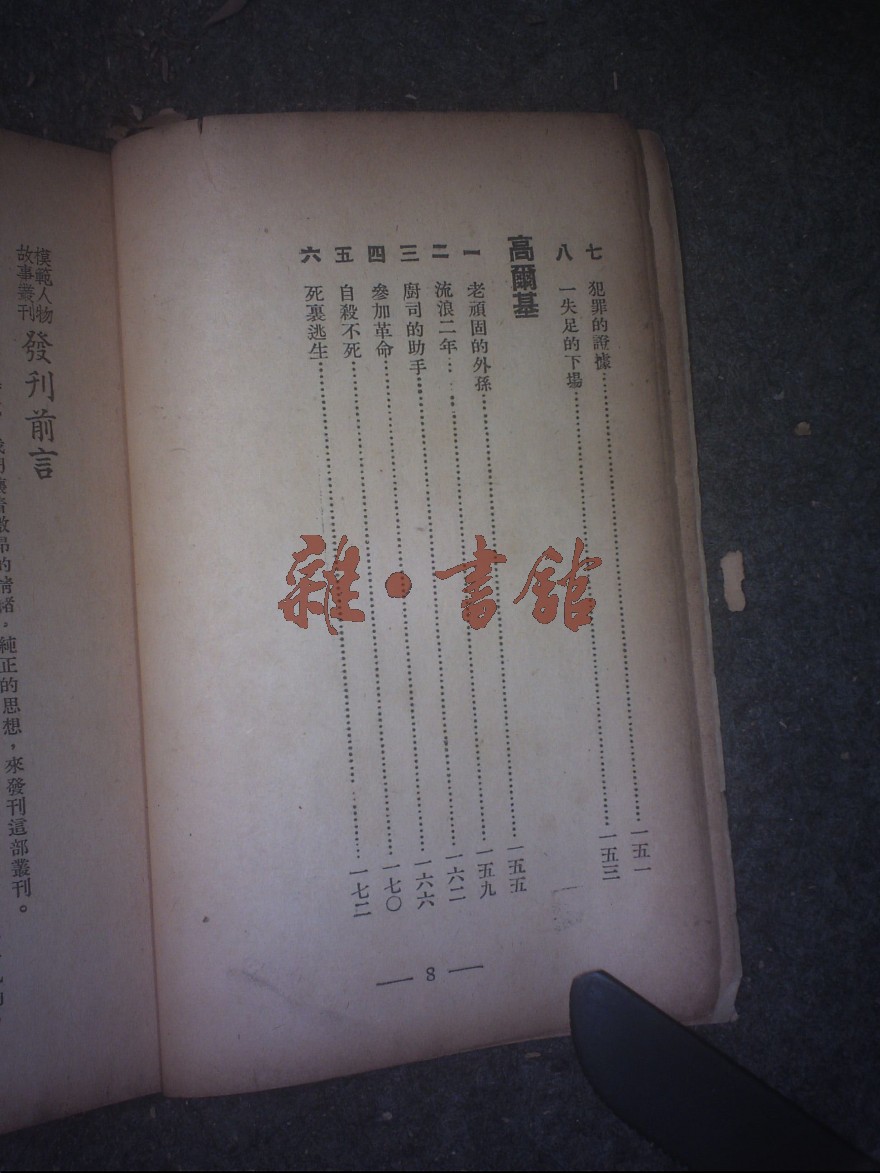 七 犯罪的證據……一五一
八 一失足的下場……一五三
高爾基
一 老頑固的外孫……一五五
二 流浪二年……一五九
三 廚司的助手……一六二
四 參加革命……一六六
五 自殺不死……一七〇
六 死裏逃生……一七二
— 8 —
模範人物
故事叢刊
發刊前言
的情緒，純正的思想，來發刊這部叢刊。
雜·書館